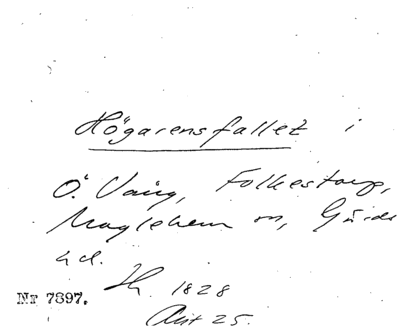 Högarensfallet i
Ö. Vång, Folkestorp,
Maglehem sn, Gärds
hd.
Nr 7397. Th. 1828
Akt 25.